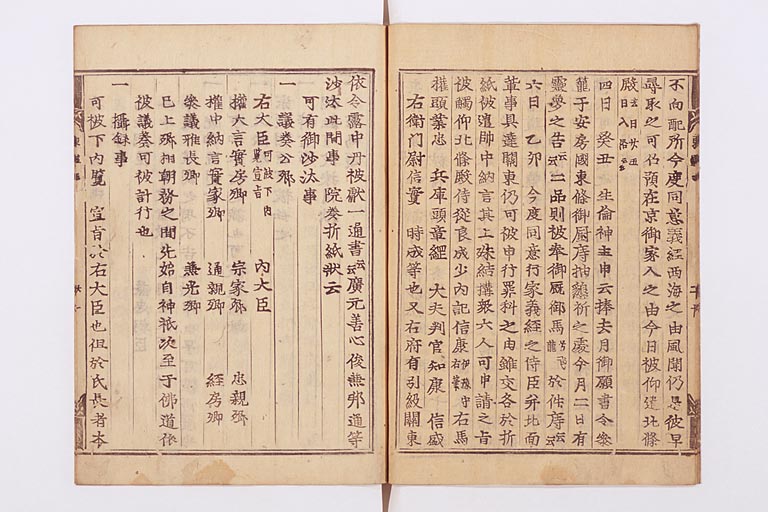 不向配所今度同意義經西海之由風聞仍早
尋取之可仍預在京御家人之由今日被仰遣北條
殿
四日 癸丑 生倫神主申云捧去月御願書令參
籠于安房國東條御厨庤抽懇祈之處今月二日有
靈夢之告云云二品則被奉御厩御馬 於件庤云云
六日 乙卯 今度同意行家義經之侍臣并北面
輩事具達關東仍可被申行罪科之由雖交名於折
紙被遣帥中納言其上殊結搆衆六人可申請之旨
被觸仰北條殿侍從良成少内記信康伊豫守右筆右馬
權頭業忠 兵庫頭章經 大夫判官知康 信盛
右衛門尉信實 時成等也又右府有引級關東
依令露中丹被獻一通書云云廣元善心俊兼邦通等
沙汰此間事 院奏折紙狀云
可有御沙汰事
一 議奏公卿
右大臣可被下内覽宣旨 内大臣
權大納言實房卿 宗家卿 忠親卿
權中納言實家卿 通親卿 經房卿
參議雅長卿 兼光卿
已上卿相朝務之間先始自神祇次至于佛道依
被議奏可被計行也
一 攝錄事
可被下内覽 宣旨於右大臣也但於氏長者本